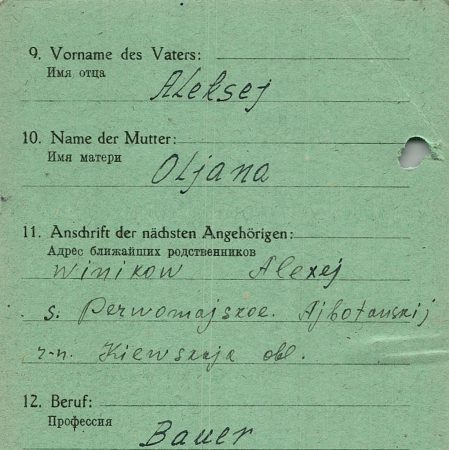 9. Vorname des Vaters:
Имя отца
Aleksej
10. Name der Mutter:
Имя матери
Oljana
11. Anschrift der nächsten Angehörigen:
Адрес ближайших родственников
Winikow Alexej
s. Perwomajskoe. Ajbotanskij
r-n. Kiewskaja obl.
12. Beruf:
Профессия
Bauer